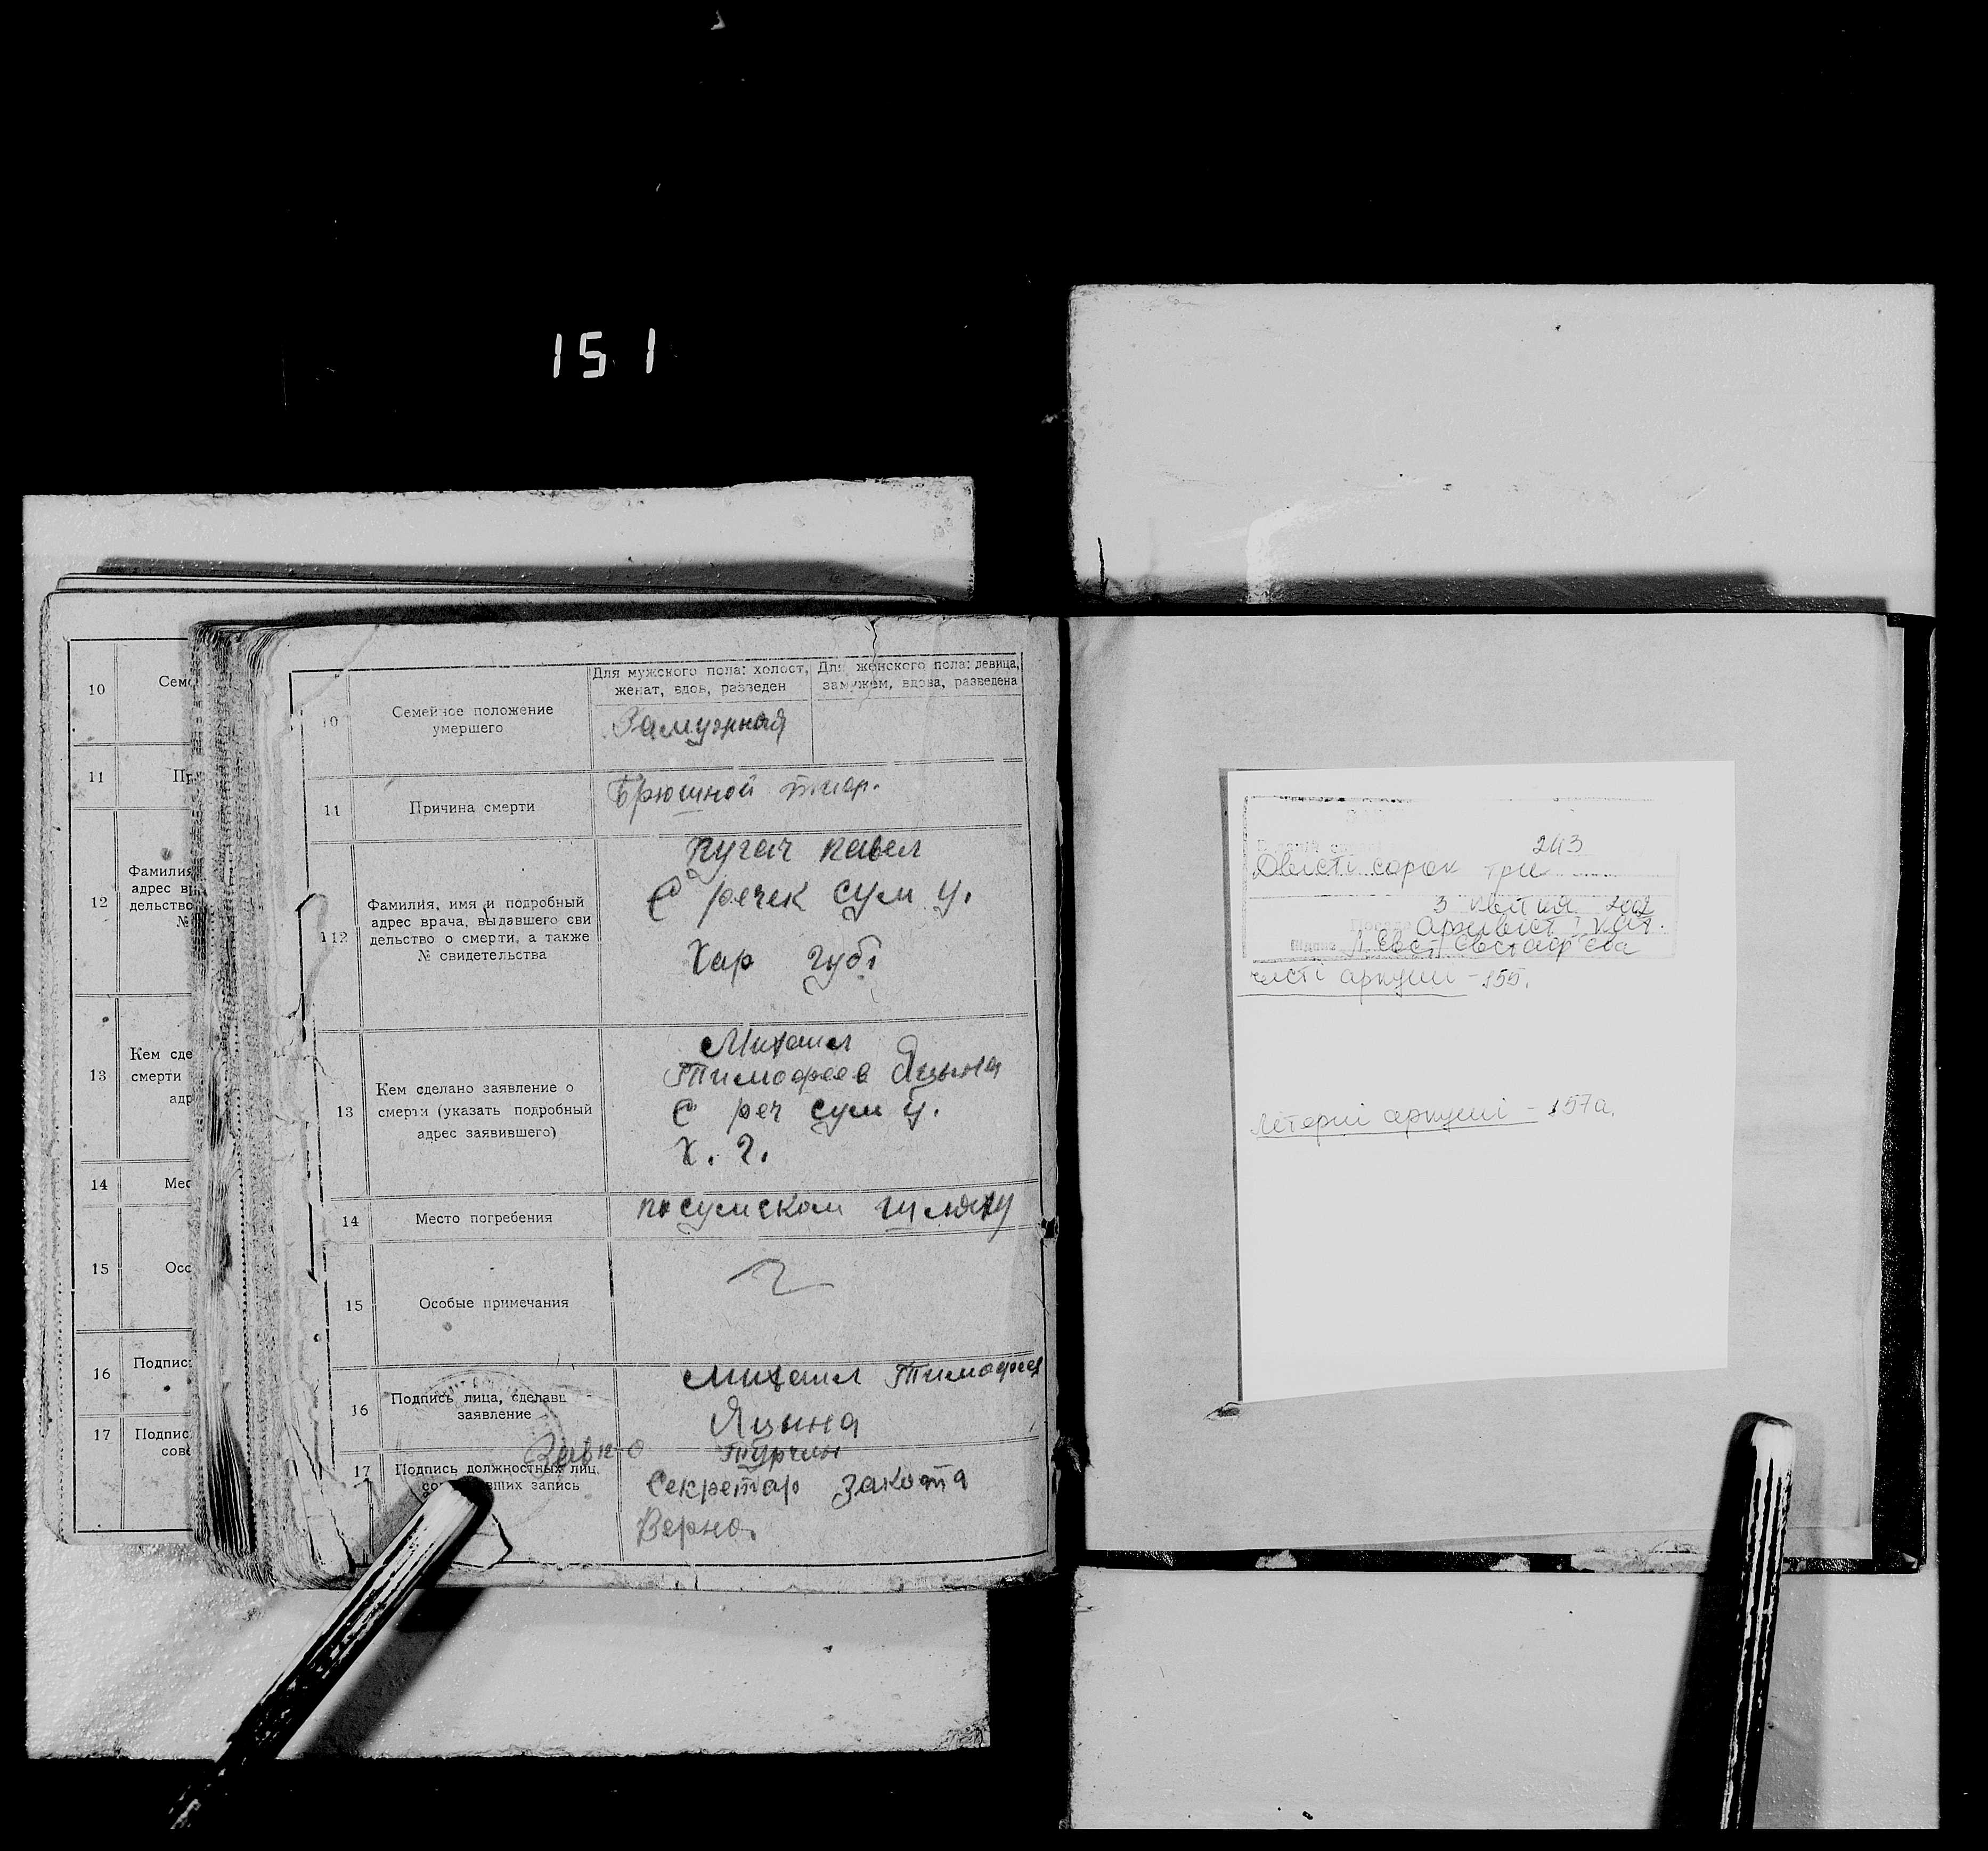 151
10
Сем
11
Пр
12
Фамилия
адрес в
дельство
№
13
Кем сде
смерти
адр
14
Мес
15
Осо
16
Подпис
17
Подпис
сов
10
Семейное положение
умершего
Для мужского пола: холост,
женат, вдов, разведен
Для женского пола: девица,
замужем, вдова, разведена
Замужная
11
Причина смерти
Брюшной тиф.
12
Фамилия, имя и подробный
адрес врача, выдавшего сви
дельство о смерти, а также
№ свидетельства
Пугач Павел
С речек сум у.
Хар губ
13
Кем сделано заявление о
смерти (указать подробный
адрес заявившего)
Михаил
Тимофеев Яцына
С реч сум у.
Х. г.
14
Место погребения
по сумском шляху
15
Особые примечания
16
Подпись лица, сделавш
заявление
Михаил Тимофеев
Яцына
17
Подпись должностных лиц,
со вших запись
Турчин
Секретар Закота
Верно.
243
Двісті сорок три
3 квітня 2002
Архівіст І кат.
чисті аркуші - 155.
літерні аркуші - 157а.